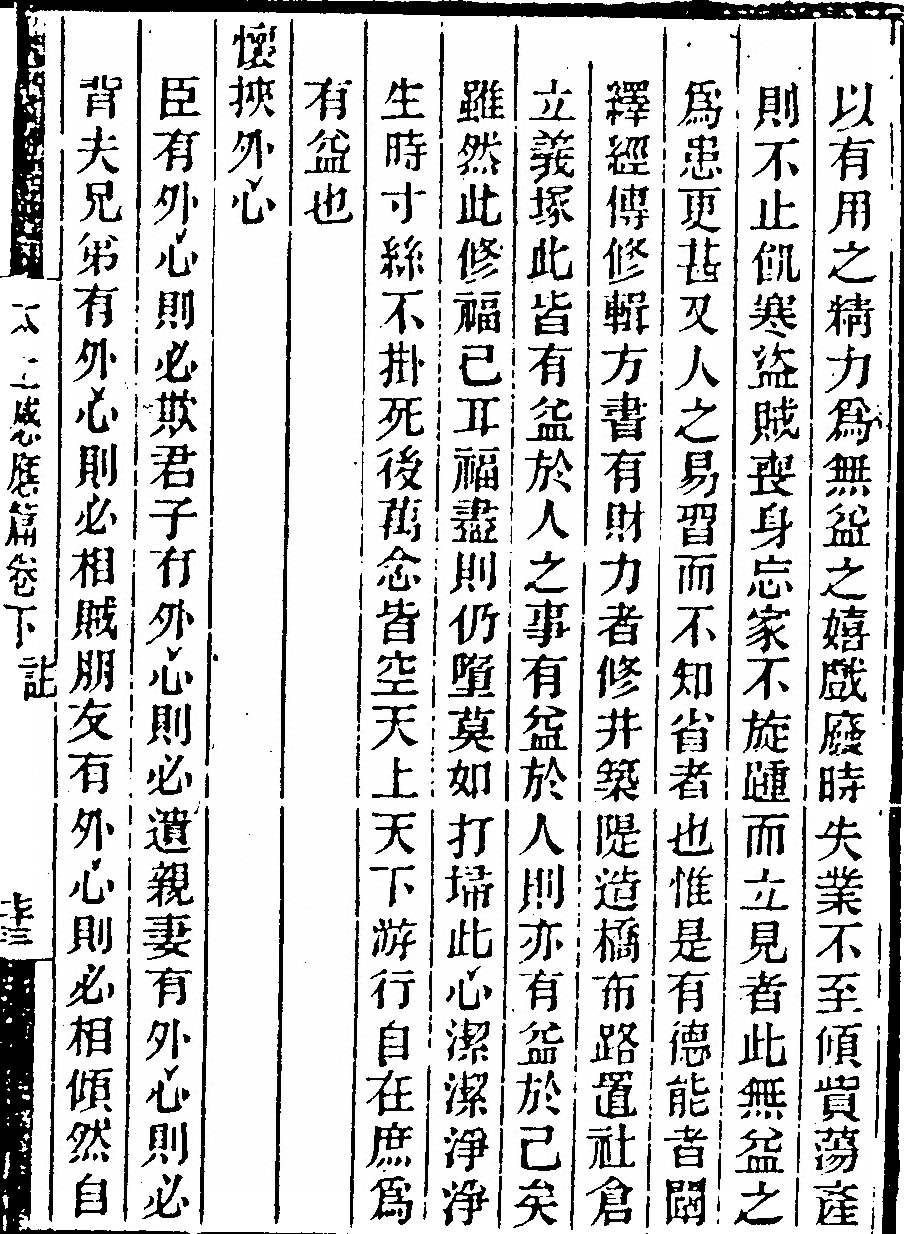 以有用之精力爲無益之嬉戲廢時失業不至傾貲蕩產
則不止飢寒盜賊喪身忘家不旋踵而立見者此無益之
爲患更甚又人之易習而不知省者也惟是有德能者闡
繹經傳修輯方書有財力者修井築隄造橋布路置社倉
立義塚此皆有益於人之事有益於人則亦有益於己矣
雖然此修福已耳福盡則仍墮莫如打埽此心潔潔淨淨
生時寸絲不掛死後萬念皆空天上天下游行自在庶爲
有益也
懷挾外心
臣有外心則必欺君子有外心則必遺親妻有外心則必
背夫兄弟有外心則必相賊朋友有外心則必相傾然自
太上感應篇卷下註